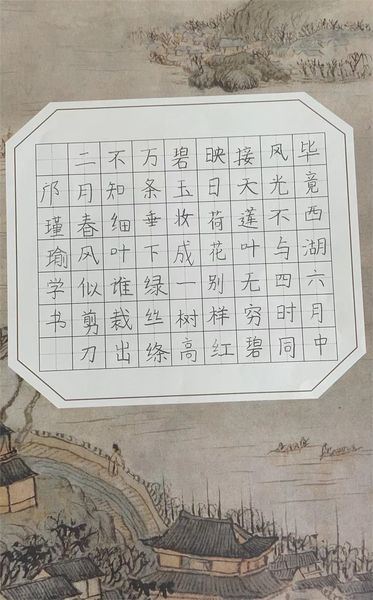 毕竟西湖六月中
风光不与四时同
接天莲叶无穷碧
映日荷花别样红
碧玉妆成一树高
万条垂下绿丝绦
不知细叶谁裁出
二月春风似剪刀
瑾瑜学书